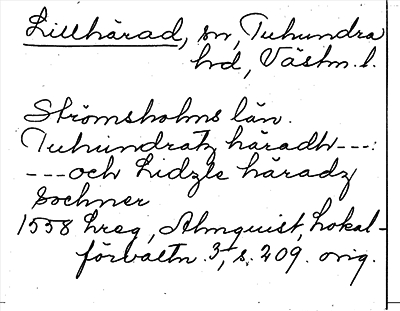 Lillhärad, sn, Tuhundra
hd, Västm. l.
Strömsholms län.
Tuhundratz häradh ---:
--- och Lidzle häradz
Sochner
1558 Lreg, Almquist, Lokal-
förvaltn. 3, s. 209. orig.